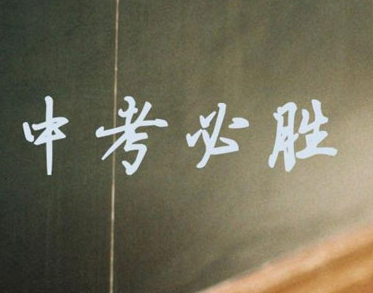 中考必胜